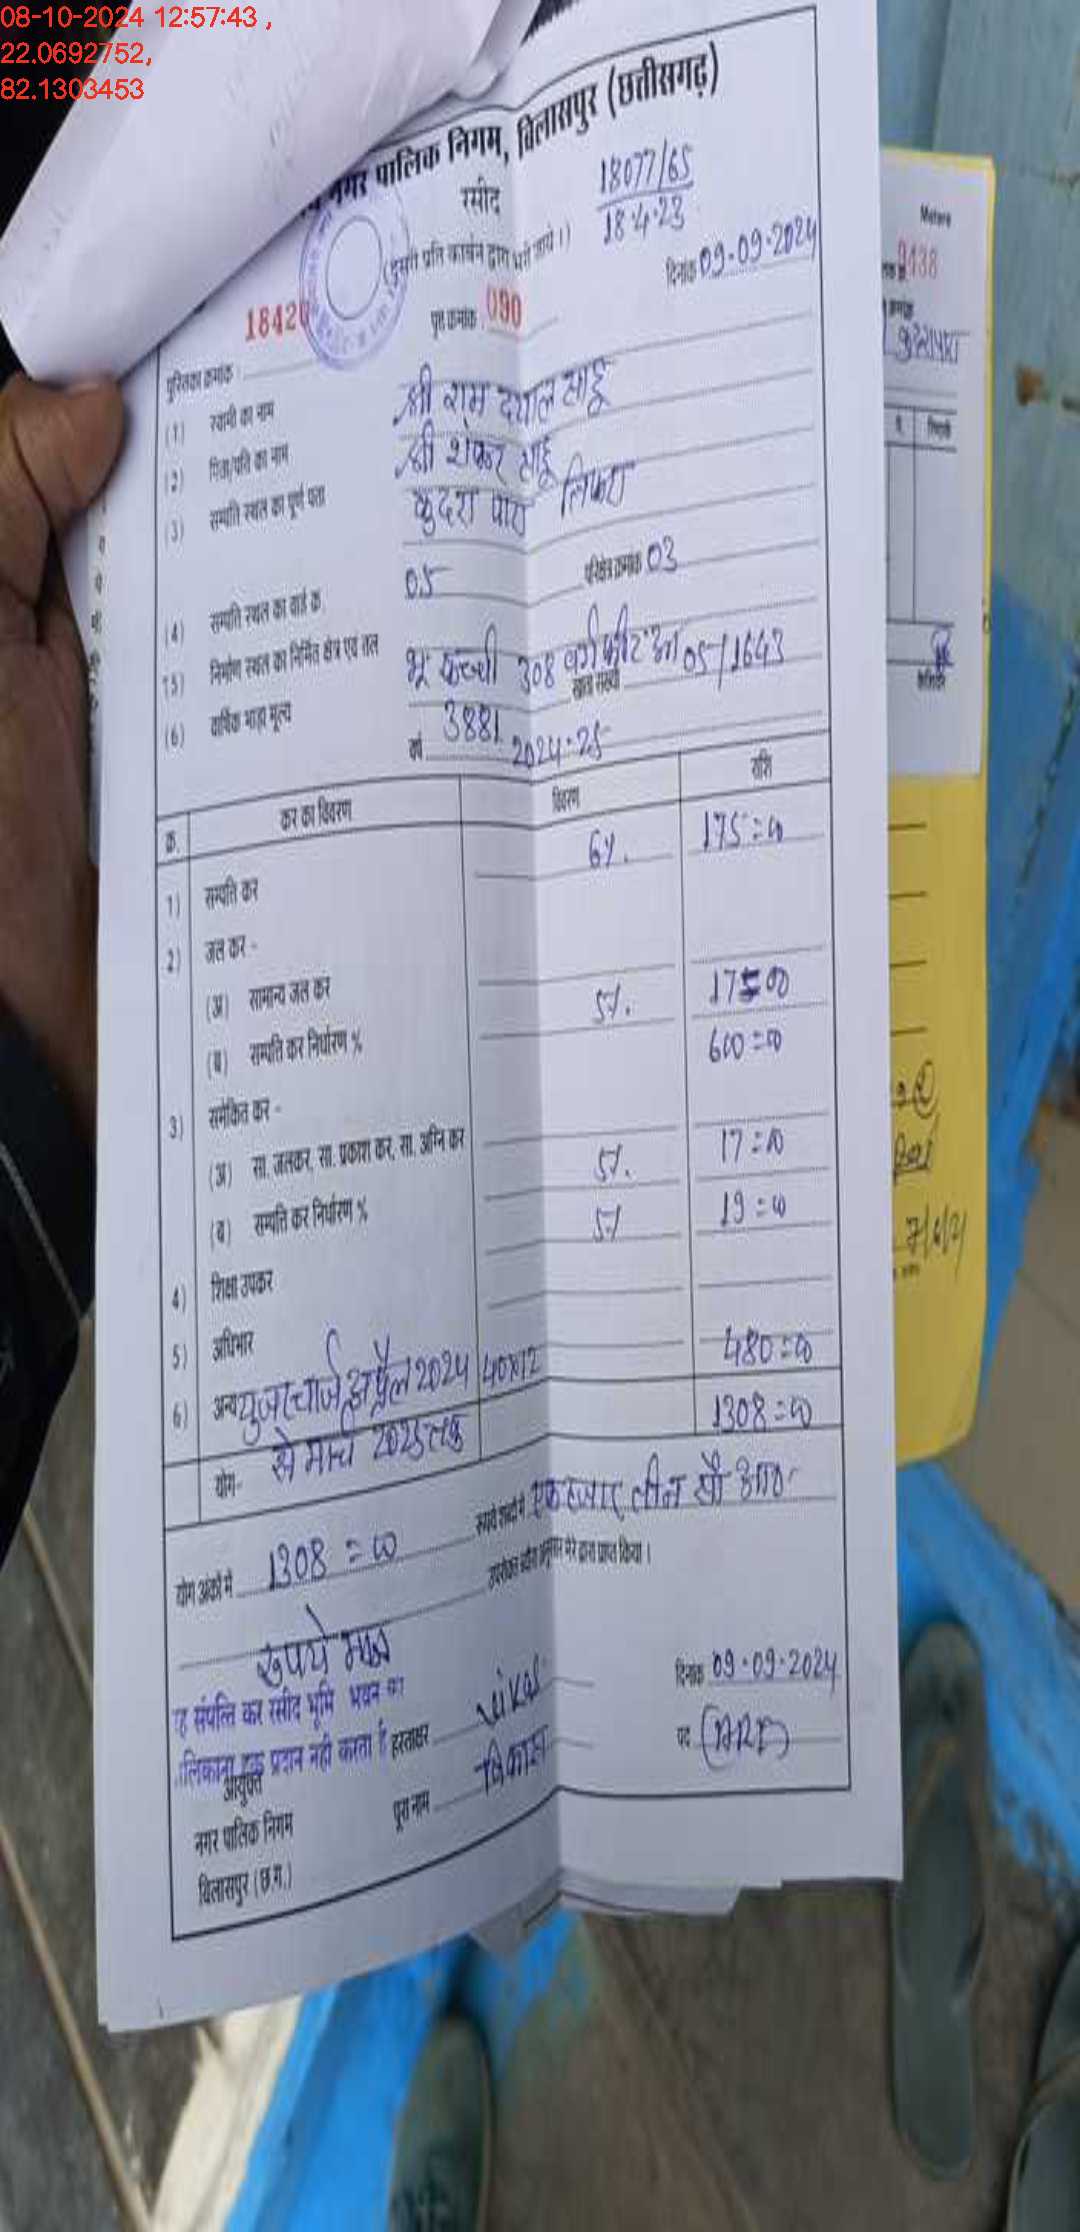 08-10-2024 12:57:43 ,
22.0692752,
82.1303453
नगर पालिक निगम, बिलासपुर (छत्तीसगढ़)
रसीद
18077/65
18.4.23
(दूसरी प्रति कार्बन द्वारा भरी जाये।)
दिनांक 09-09-2024
पुस्तिका क्रमांक 1842
पृष्ठ क्रमांक 090
(1) स्वामी का नाम श्री राम दयाल साहू
(2) पिता/पति का नाम श्री शंकर साहू
(3) सम्पत्ति स्थल का पूर्ण पता कुदरा पारा तिफरा
(4) सम्पत्ति स्थल का वार्ड क्र. 05 परिक्षेत्र क्रमांक 03
(5) निर्माण स्थल का निर्मित क्षेत्र एवं तल भू कच्ची 308 वर्गफीट
खाता संख्या 05/1643
(6) वार्षिक भाड़ा मूल्य 3881
वर्ष 2024-25
क्र. कर का विवरण विवरण राशि
1) सम्पत्ति कर 6%. 175=00
2) जल कर -
(अ) सामान्य जल कर
(ब) सम्पत्ति कर निर्धारण % 5%. 17=00
600=00
3) समेकित कर -
(अ) सा. जलकर, सा. प्रकाश कर, सा. अग्नि कर
(ब) सम्पत्ति कर निर्धारण % 5%. 17=00
4) शिक्षा उपकर 5% 19=00
5) अधिभार
6) अन्य युजर चार्ज अप्रैल 2024 40x12 480=00
से मार्च 2025 तक
योग- 1308=00
योग अंकों में 1308=00 रूपये शब्दों में एक हजार तीन सौ आठ
रुपये मात्र
उपरोक्त ब्यौरा अनुसार मेरे द्वारा प्राप्त किया।
ह संपत्ति कर रसीद भूमि भवन का
लिकाना हक प्रदान नही करता है
हस्ताक्षर Vikas
दिनांक 09-09-2024
पूरा नाम विकास
पद (ARI)
आयुक्त
नगर पालिक निगम
बिलासपुर (छ.ग.)
9438